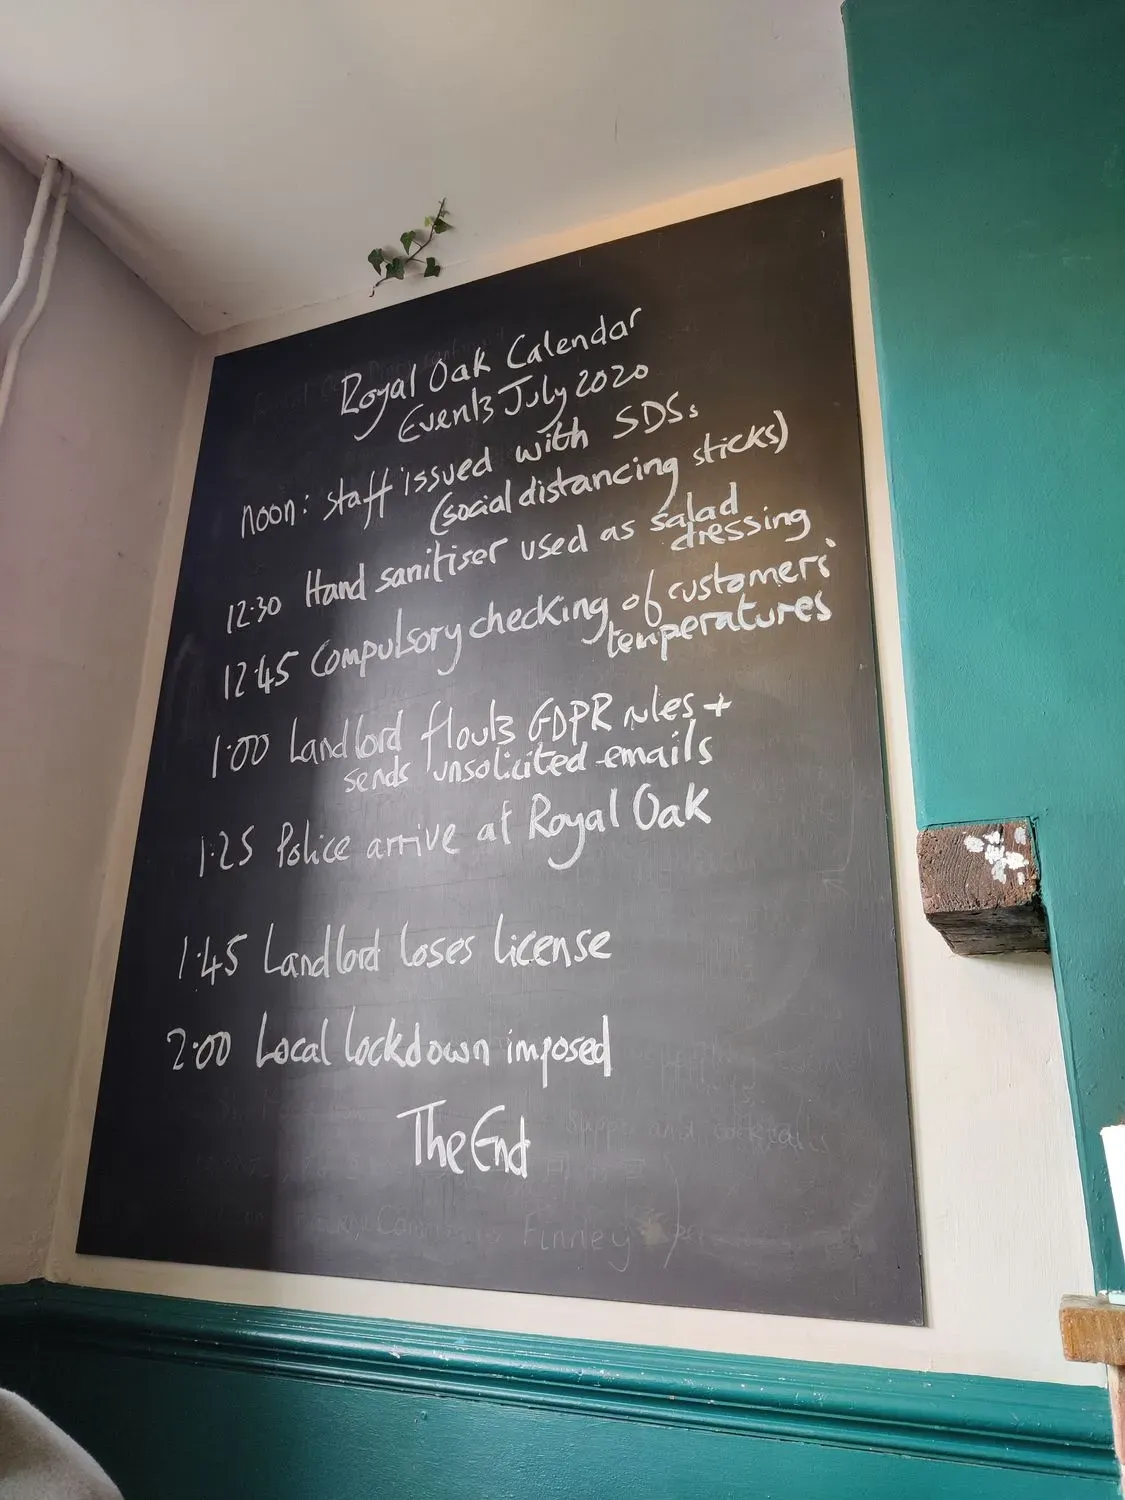 Royal Oak Calendar
Events July 2020
noon: staff issued with SDSs
(social distancing sticks)
12:30 Hand sanitiser used as salad
dressing
12:45 Compulsory checking of customers'
temperatures
1:00 Landlord flouts GDPR rules +
sends unsolicited emails
1:25 Police arrive at Royal Oak
1:45 Landlord loses license
2:00 Local lockdown imposed
The End
and cocktails
Finney